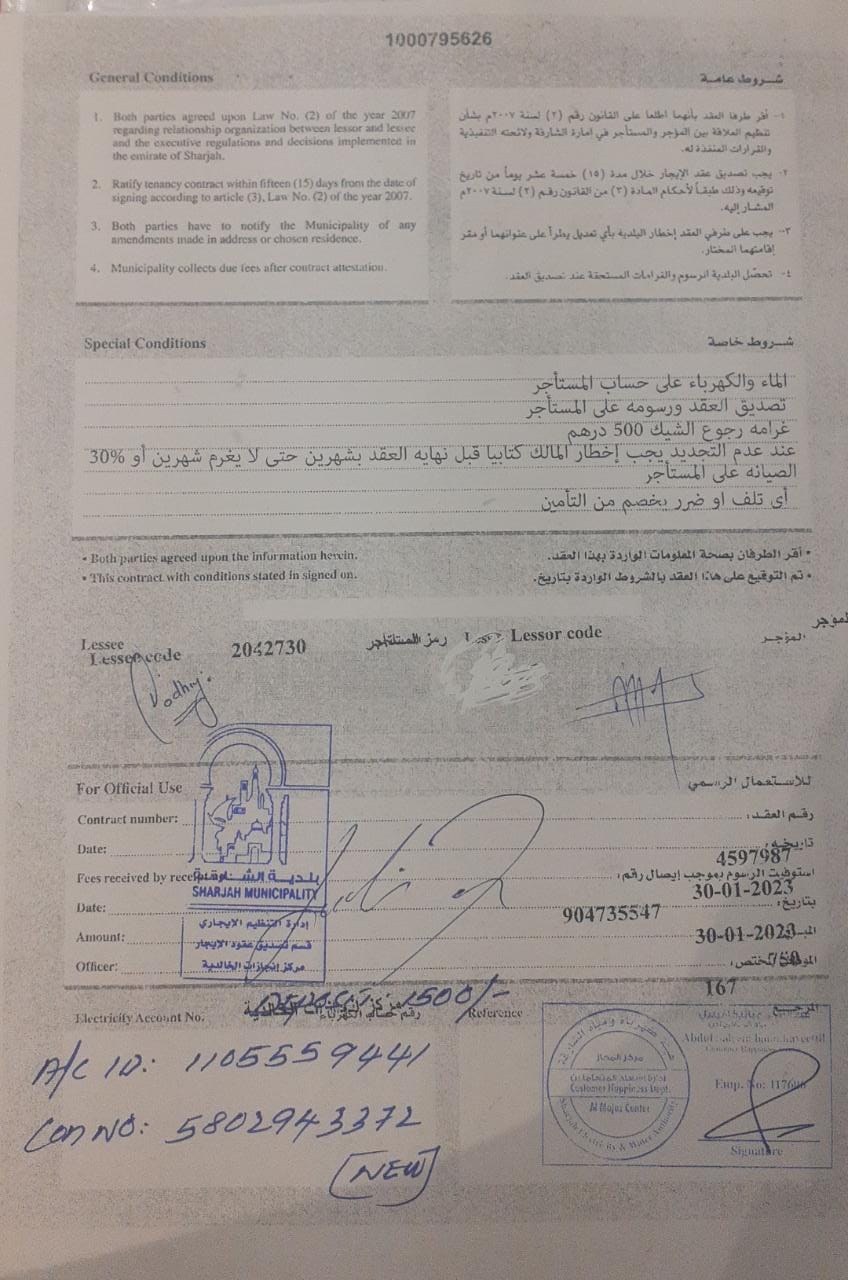 1000795626
General Conditions
شروط عامة
1. Both parties agreed upon Law No. (2) of the year 2007
regarding relationship organization between lessor and lessee
and the executive regulations and decisions implemented in
the emirate of Sharjah.
2. Ratify tenancy contract within fifteen (15) days from the date of
signing according to article (3), Law No. (2) of the year 2007.
3. Both parties have to notify the Municipality of any
amendments made in address or chosen residence.
4. Municipality collects due fees after contract attestation.
١- أقر طرفا العقد بأنهما اطلعا على القانون رقم (٢) لسنة ٢٠٠٧م بشأن
تنظيم العلاقة بين المؤجر والمستأجر في امارة الشارقة ولائحته التنفيذية
والقرارات المنفذة له.
٢- يجب تصديق عقد الإيجار خلال مدة (١٥) خمسة عشر يوماً من تاريخ
توقيعه وذلك طبقاً لأحكام المادة (٣) من القانون رقم (٢) لسنة ٢٠٠٧م
المشار إليه.
٣- يجب على طرفي العقد إخطار البلدية بأي تعديل يطرأ على عنوانهما أو مقر
إقامتهما المختار.
٤- تحصّل البلدية الرسوم والغرامات المستحقة عند تصديق العقد.
Special Conditions
شروط خاصة
الماء والكهرباء على حساب المستأجر
تصديق العقد ورسومه على المستأجر
غرامه رجوع الشيك 500 درهم
عند عدم التجديد يجب إخطار المالك كتابيا قبل نهايه العقد بشهرين حتى لا يغرم شهرين أو 30%
الصيانه على المستأجر
أي تلف او ضرر يخصم من التأمين
• Both parties agreed upon the information herein.
• أقر الطرفان بصحة المعلومات الواردة بهذا العقد.
• This contract with conditions stated in signed on.
• تم التوقيع على هذا العقد بالشروط الواردة بتاريخ.
Lessee
المؤجر
Lessee code 2042730 رمز المستأجر Lessor code المؤجر
For Official Use
للاستعمال الرسمي
Contract number:
رقم العقد:
Date:
تاريخه:
4597987
Fees received by receipt
استوفيت الرسوم بموجب إيصال رقم:
30-01-2023
Date:
بتاريخ:
904735547
Amount:
30-01-2023
Officer:
750
167
بلدية الشارقة
SHARJAH MUNICIPALITY
إدارة التنظيم الإيجاري
قسم تصديق عقود الإيجار
مركز إنجازات الخالدية
1500/-
Electricity Account No.
رقم حساب الكهرباء
Reference
المرجع
A/C ID: 1105559441
Con NO: 5802943372
[NEW]
هيئة كهرباء ومياه الشارقة
مركز المجاز
إدارة إسعاد المتعاملين
Customer Happiness Dept.
Al Majaz Center
Sharjah Electricity & Water Authority
Customer Happiness
Emp. No:
Signature